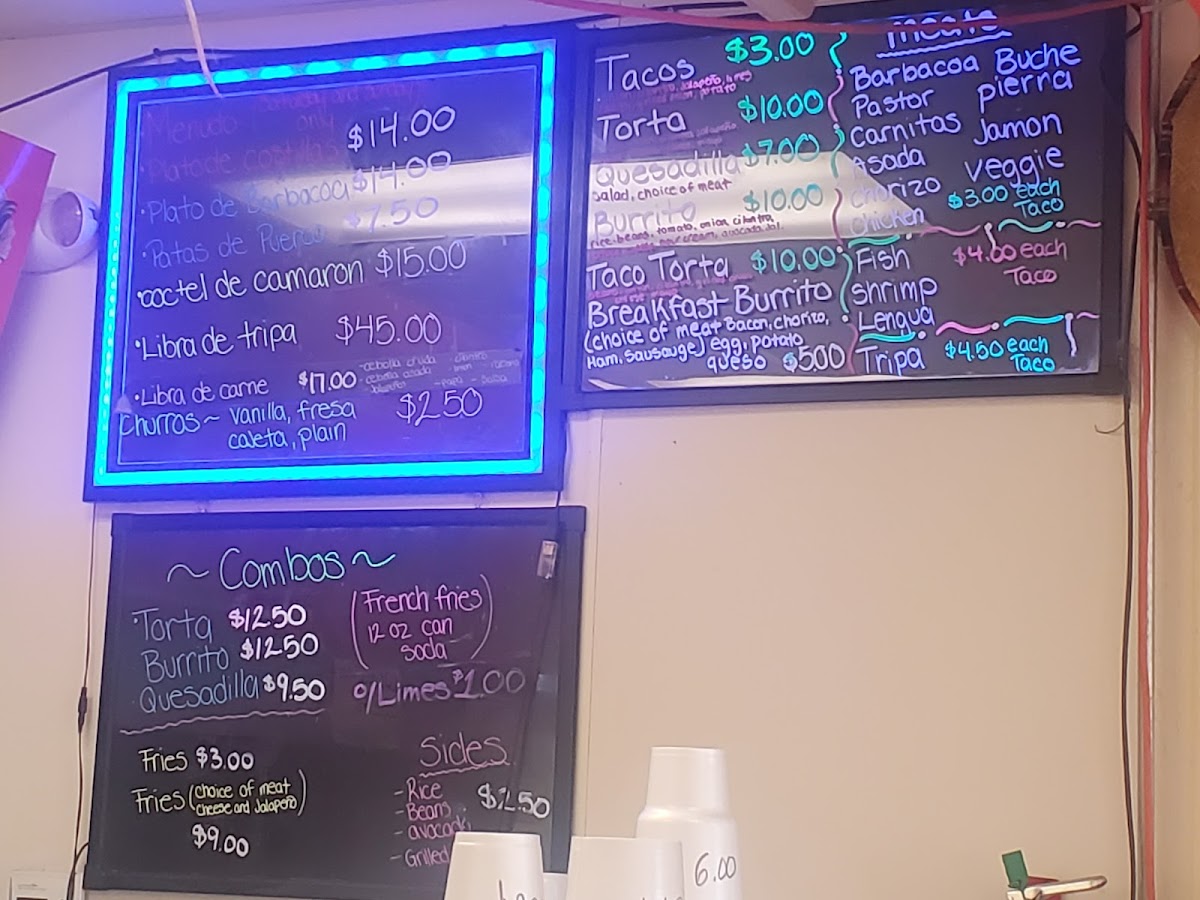 Menudo only
Plato de costillas $14.00
Plato de Barbacoa $14.00
Patas de Puerco $7.50
coctel de camaron $15.00
Libra de tripa $45.00
Libra de carne $17.00
-cebolla cruda
-cebolla asada
-Jalapeños
-limon
-Papa - Salsa
Churros ~ vanilla, fresa $2.50
cajeta, plain
Tacos $3.00
Torta $10.00
Quesadilla $7.00
Salad, choice of meat
Burrito $10.00
rice, beans, tomato, onion, cilantro,
sour cream, avocado, Jal.
Taco Torta $10.00
Breakfast Burrito
(choice of meat Bacon, chorizo,
Ham, Sausauge) egg, potato
queso $5.00
meats
Barbacoa Buche
Pastor pierna
Carnitas Jamon
Asada veggie
Chorizo $3.00 each
Chicken Taco
Fish $4.00 each
Shrimp Taco
Lengua
Tripa $4.50 each
Taco
~ Combos ~
Torta $12.50
Burrito $12.50
Quesadilla $9.50
(French fries
12 oz can
soda)
o/Limes $1.00
Fries $3.00
Fries (choice of meat
cheese and Jalapeño)
$9.00
Sides
- Rice $2.50
- Beans
- avocado
- Grilled
6.00